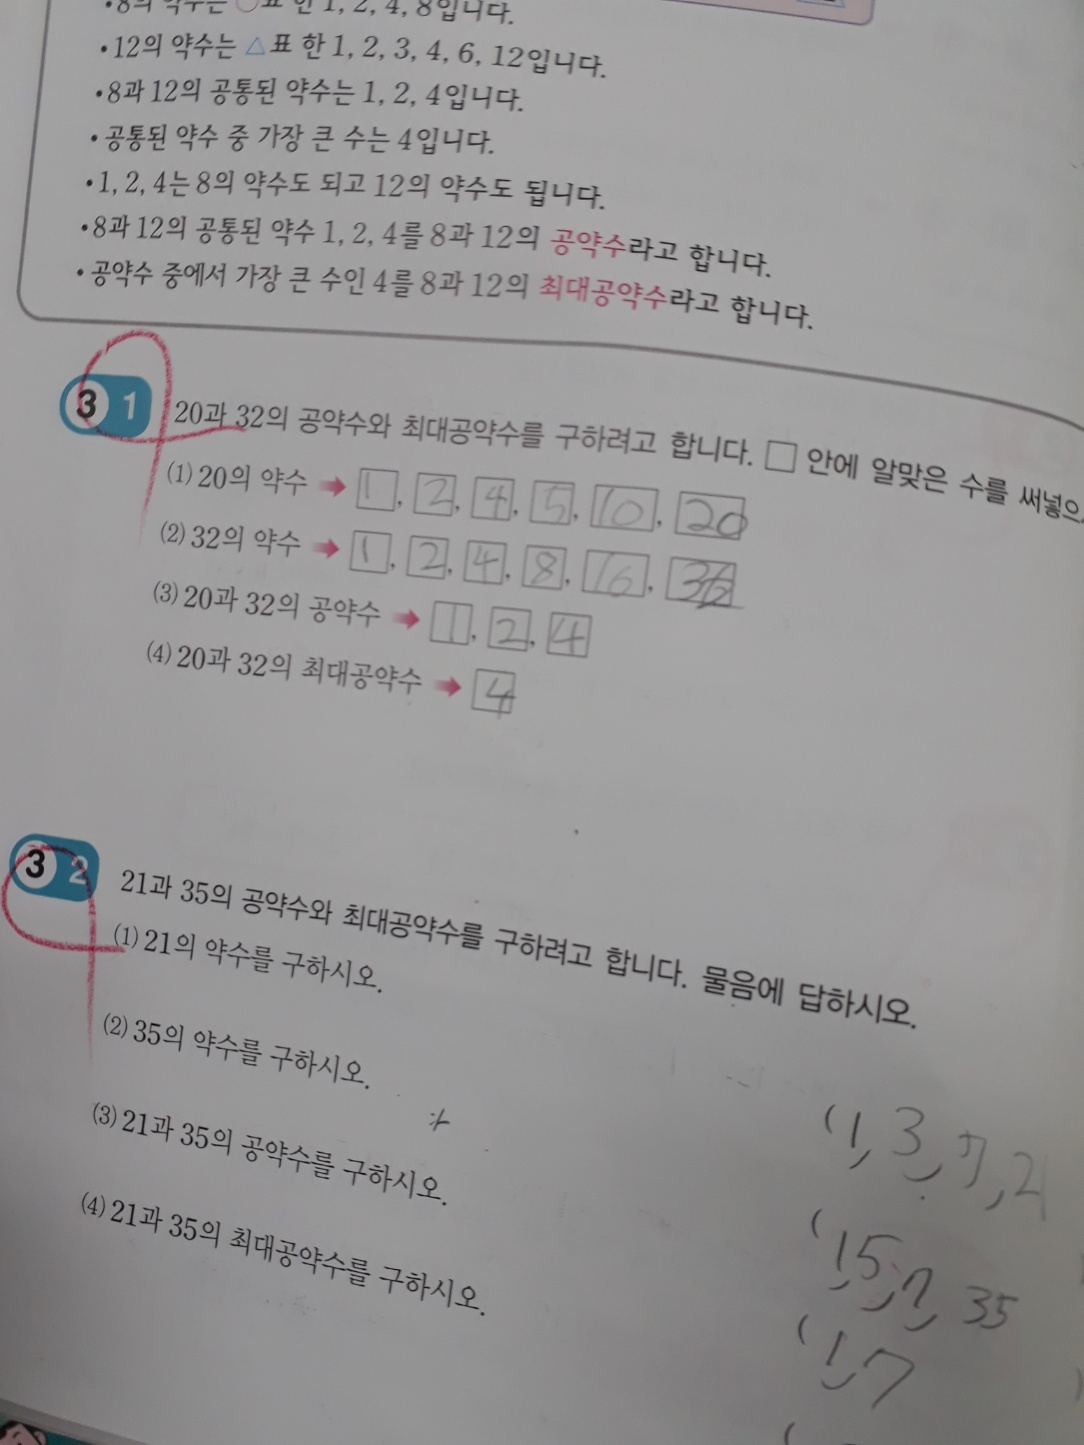 •8의 약수는 ○표 한 1, 2, 4, 8입니다.
•12의 약수는 △표 한 1, 2, 3, 4, 6, 12입니다.
•8과 12의 공통된 약수는 1, 2, 4입니다.
•공통된 약수 중 가장 큰 수는 4입니다.
•1, 2, 4는 8의 약수도 되고 12의 약수도 됩니다.
•8과 12의 공통된 약수 1, 2, 4를 8과 12의 공약수라고 합니다.
•공약수 중에서 가장 큰 수인 4를 8과 12의 최대공약수라고 합니다.
3 1
20과 32의 공약수와 최대공약수를 구하려고 합니다. □ 안에 알맞은 수를 써넣으
(1) 20의 약수 ➡ 1, 2, 4, 5, 10, 20
(2) 32의 약수 ➡ 1, 2, 4, 8, 16,
(3) 20과 32의 공약수 ➡ 1, 2, 4
(4) 20과 32의 최대공약수 ➡ 4
3 2
21과 35의 공약수와 최대공약수를 구하려고 합니다. 물음에 답하시오.
(1) 21의 약수를 구하시오.
(1, 3, 7, 21
(2) 35의 약수를 구하시오.
(1, 5, 7, 35
(3) 21과 35의 공약수를 구하시오.
(1, 7
(4) 21과 35의 최대공약수를 구하시오.
(